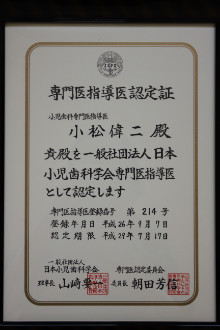 専門医指導医認定証
小児歯科専門医指導医
小松偉二殿
貴殿を一般社団法人日本
小児歯科学会専門医指導医
として認定します
専門医指導医登録番号 第214号
登録年月日 平成26年9月17日
認定期限 平成29年7月17日
一般社団法人
日本小児歯科学会 専門医認定委員会
理事長 山﨑要一 委員長 朝田芳信